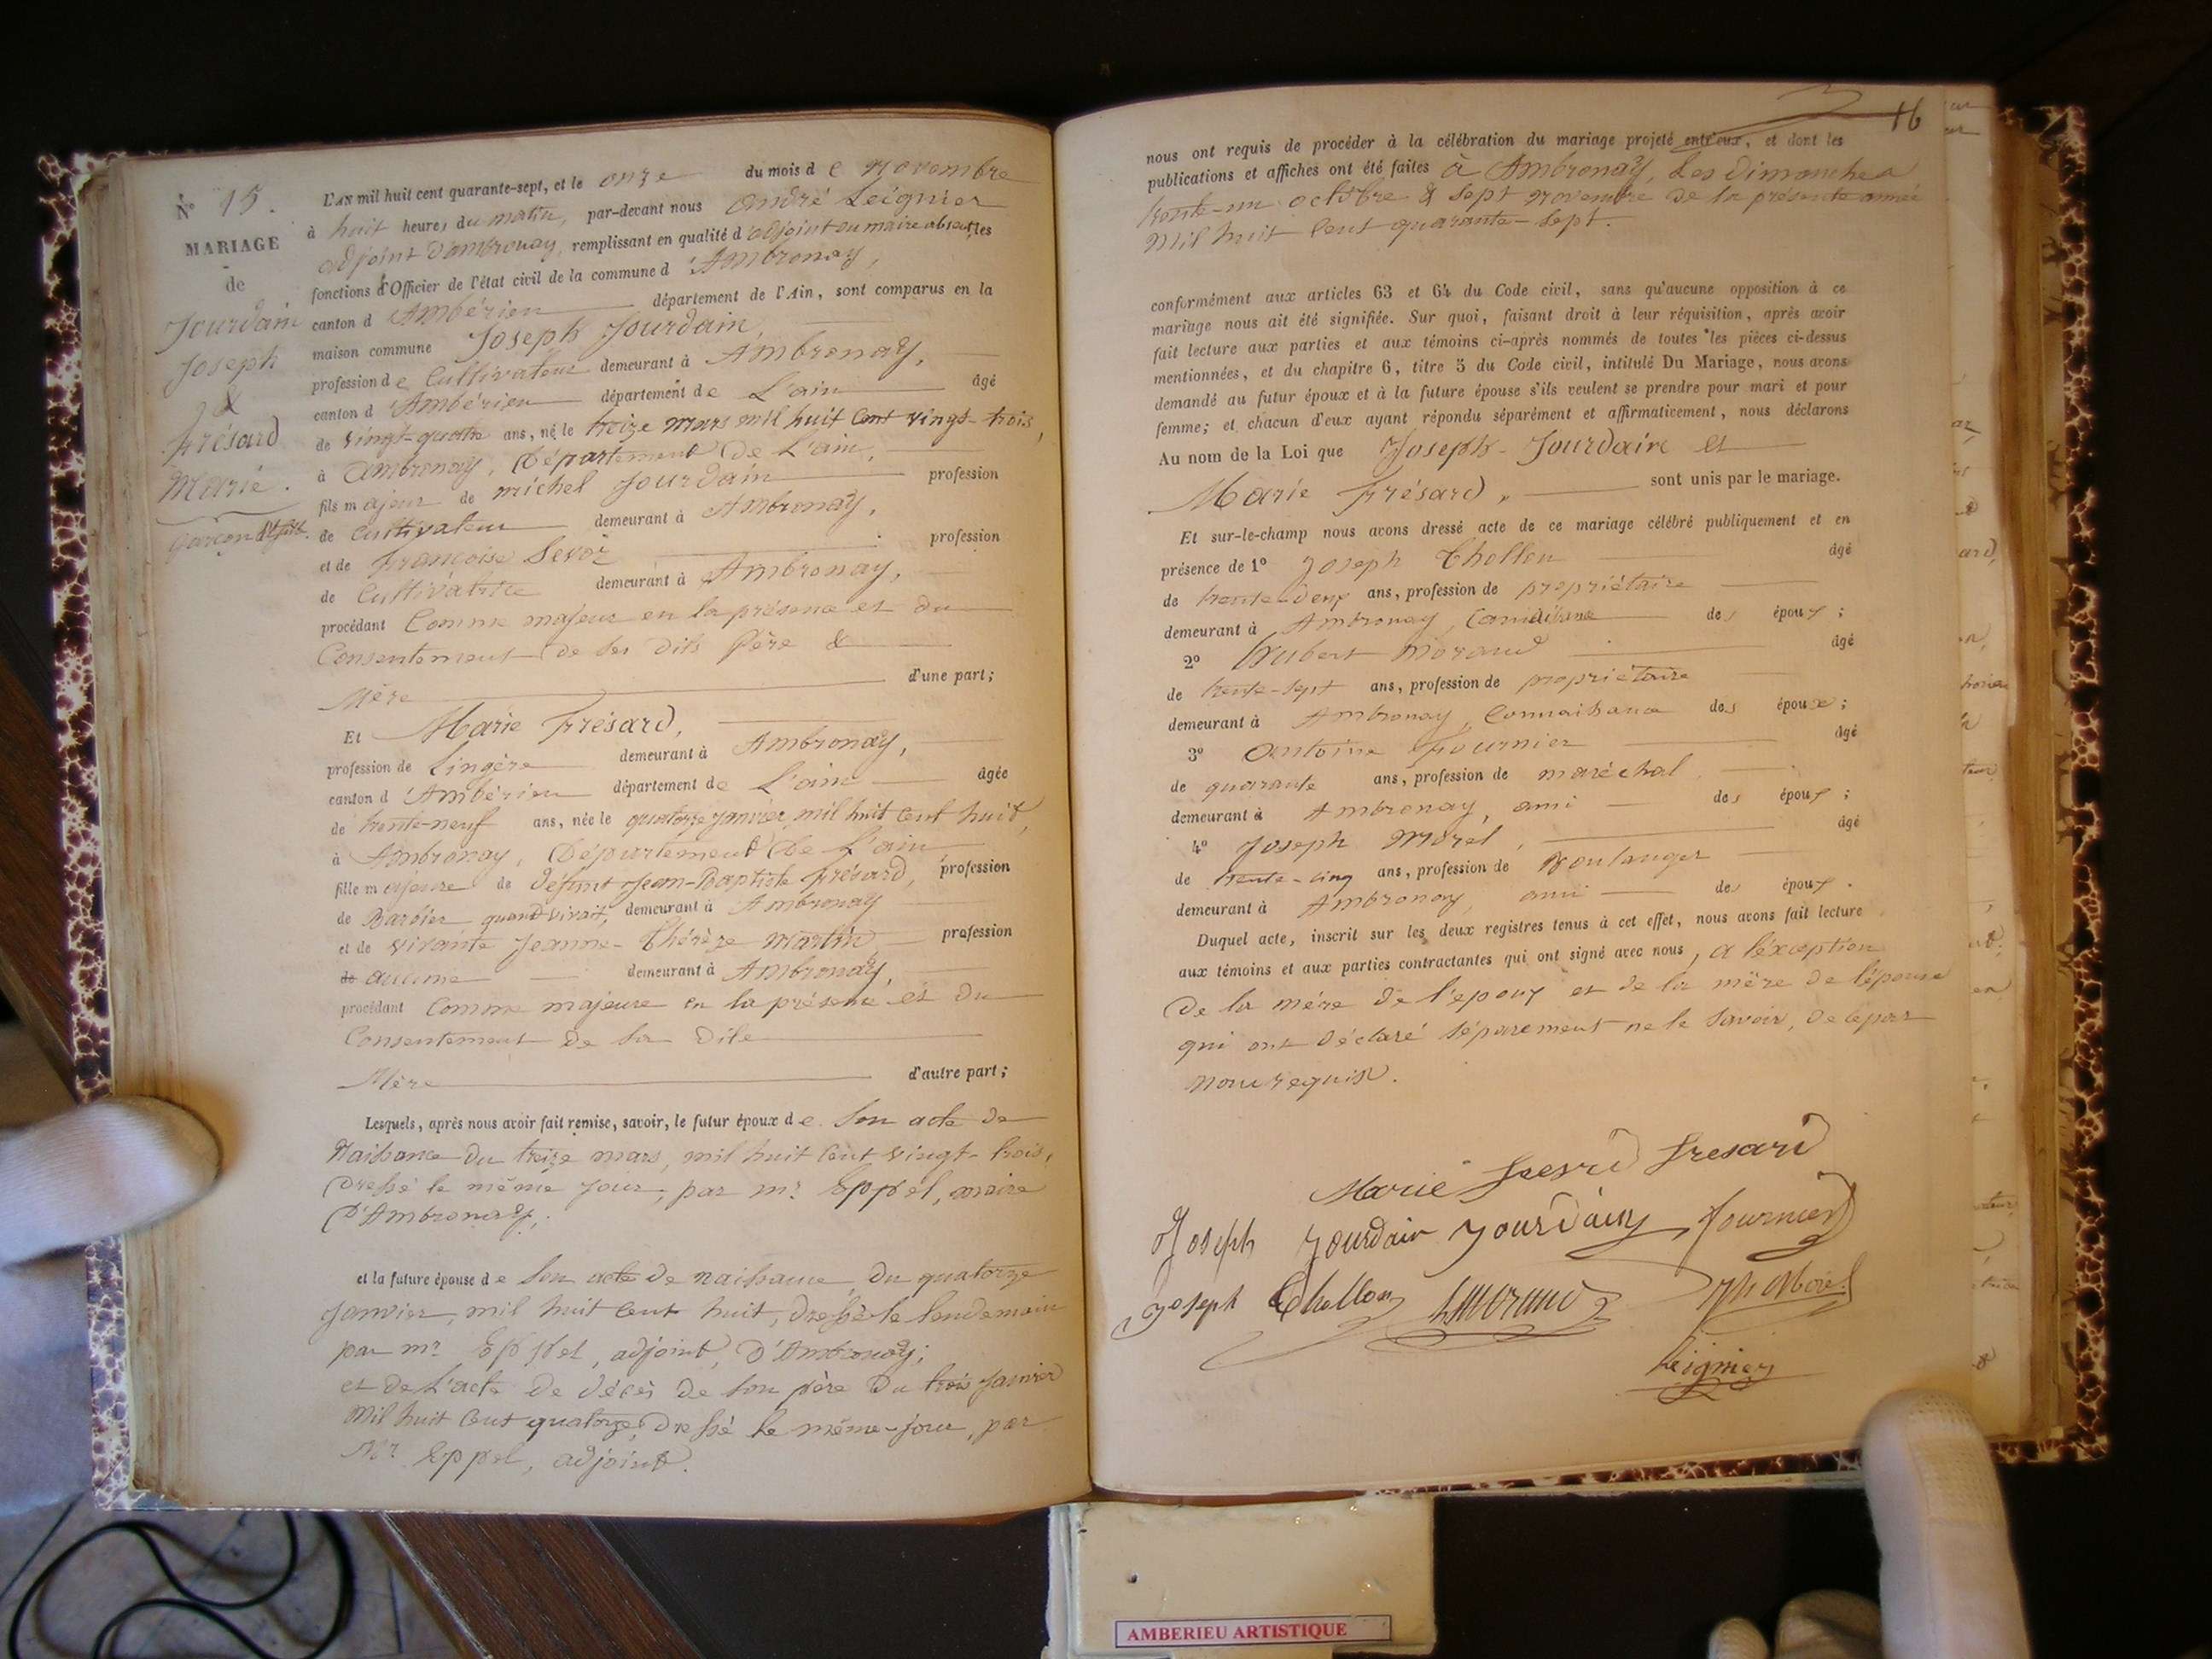 N° 15.
MARIAGE
de
Jourdain
Joseph
&
Frésard
Marie.
garçon & fille.
L'AN mil huit cent quarante-sept, et le onze du mois de Novembre
à huit heures du matin, par-devant nous André Leignier
adjoint d'ambronay, remplissant en qualité d'adjoint au maire absent, les
fonctions d'Officier de l'état civil de la commune d'Ambronay,
canton d'Ambérieu département de l'Ain, sont comparus en la
maison commune Joseph Jourdain,
profession de Cultivateur demeurant à Ambronay,
canton d'Ambérieu département de L'ain âgé
de vingt-quatre ans, né le treize mars mil huit cent vingt-trois,
à Ambronay, Département de L'ain,
fils majeur de michel Jourdain profession
de Cultivateur demeurant à Ambronay,
et de Francoise Sevoz profession
de Cultivatrice demeurant à Ambronay,
procédant Comme majeur en la présence et du
Consentement de ses dits Père &
Mère d'une part;
Et Marie Frésard,
profession de Lingère demeurant à Ambronay,
canton d'Ambérieu département de L'ain âgée
de trente-neuf ans, née le quatorze janvier mil huit cent huit,
à Ambronay, Département de L'ain
fille majeure de défunt Jean-Baptiste Frésard, profession
de Barbier quand vivait, demeurant à Ambronay
et de vivante Jeanne-Thérèze Martin profession
de aucune demeurant à Ambronay,
procédant Comme majeure en la présence et du
Consentement de sa dite
Mère d'autre part;
Lesquels, après nous avoir fait remise, savoir, le futur époux de son acte de
Naissance du treize mars, mil huit cent vingt-trois,
Dressé le même jour, par mr. Eppel, maire
D'Ambronay;
et la future épouse de son acte de naissance du quatorze
Janvier, mil huit cent huit, dressé le lendemain
par mr. Eppel, adjoint, D'Ambronay;
et de L'acte de décès de son père du trois Janvier
Mil huit cent quatorze, Dressé le même-jour, par
Mr. Eppel, adjoint.
16
nous ont requis de procéder à la célébration du mariage projeté entr'eux, et dont les
publications et affiches ont été faites à Ambronay, les Dimanches
trente-un octobre & sept novembre de la présente année
Mil huit cent quarante-sept.
conformément aux articles 63 et 64 du Code civil, sans qu'aucune opposition à ce
mariage nous ait été signifiée. Sur quoi, faisant droit à leur réquisition, après avoir
fait lecture aux parties et aux témoins ci-après nommés de toutes les pièces ci-dessus
mentionnées, et du chapitre 6, titre 5 du Code civil, intitulé Du Mariage, nous avons
demandé au futur époux et à la future épouse s'ils veulent se prendre pour mari et pour
femme; et chacun d'eux ayant répondu séparément et affirmativement, nous déclarons
Au nom de la Loi que Joseph-Jourdain et
Marie Frésard, sont unis par le mariage.
Et sur-le-champ nous avons dressé acte de ce mariage célébré publiquement et en
présence de 1° Joseph Chollon âgé
de trente-deux ans, profession de propriétaire
demeurant à Ambronay, des époux;
2° Hubert Morand âgé
de trente-sept ans, profession de propriétaire
demeurant à Ambronay, Connaissance des époux;
3° Antoine Fournier âgé
de quarante ans, profession de maréchal
demeurant à Ambronay, ami des époux;
4° Joseph Morel, âgé
de trente-cinq ans, profession de Boulanger
demeurant à Ambronay, ami des époux.
Duquel acte, inscrit sur les deux registres tenus à cet effet, nous avons fait lecture
aux témoins et aux parties contractantes qui ont signé avec nous, a l'éxception
De la mére de l'epoux et de la mère de l'épouse
qui ont déclaré séparement ne le savoir, de ce par
nous requis.
Marie Fresard
Joseph Jourdain Jourdain Fournier
Joseph Chollon hMorand Jh Morel
Leignier
AMBERIEU ARTISTIQUE